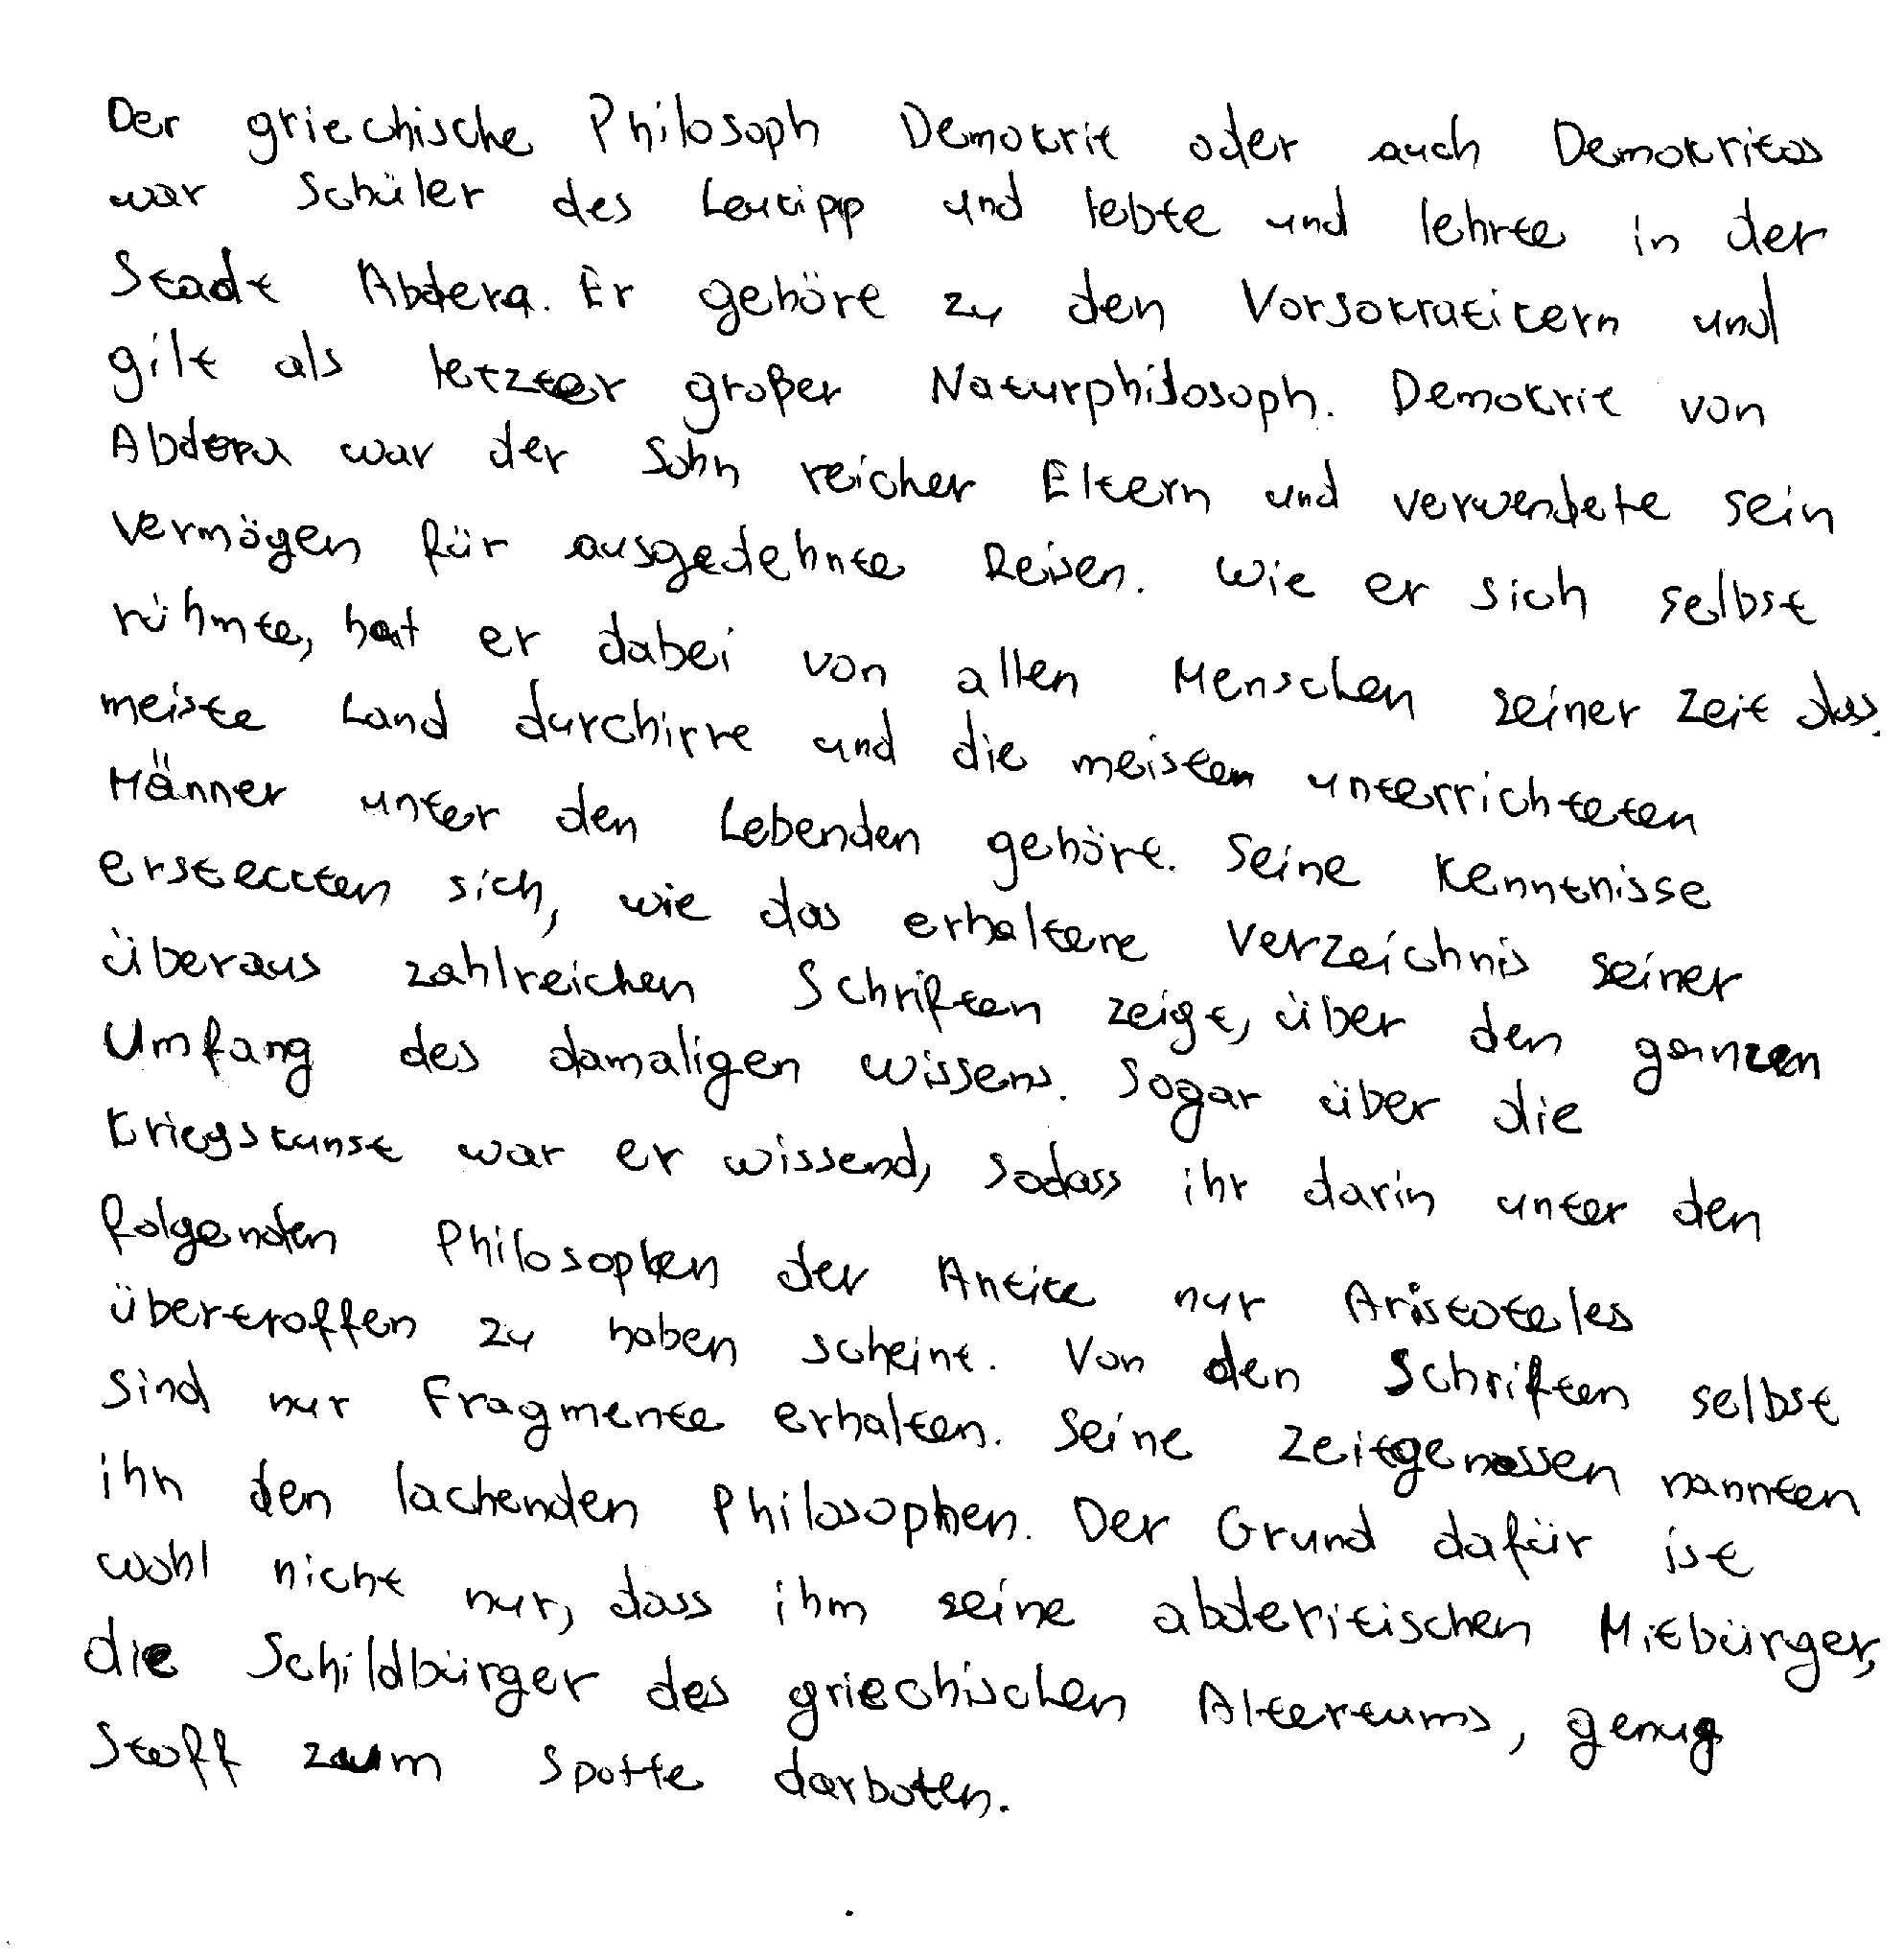 Der griechische Philosoph Demokrit oder auch Demokritos
war Schüler des Leukipp und lebte und lehrte in der
Stadt Abdera. Er gehört zu den Vorsokratikern und
gilt als letzter großer Naturphilosoph. Demokrit von
Abdera war der Sohn reicher Eltern und verwendete sein
Vermögen für ausgedehnte Reisen. Wie er sich selbst
rühmte, hat er dabei von allen Menschen seiner Zeit das
meiste Land durchirrt und die meisten unterrichteten
Männer unter den Lebenden gehört. Seine Kenntnisse
ersteckten sich, wie das erhaltene Verzeichnis seiner
überaus zahlreichen Schriften zeigt, über den ganzen
Umfang des damaligen Wissens. Sogar über die
Kriegskunst war er wissend, sodass ihr darin unter den
folgenden Philosophen der Antike nur Aristoteles
übertroffen zu haben scheint. Von den Schriften selbst
sind nur Fragmente erhalten. Seine Zeitgenossen nannten
ihn den lachenden Philosophen. Der Grund dafür ist
wohl nicht nur, dass ihm seine abderitischen Mitbürger,
die Schildbürger des griechischen Altertums, genug
Stoff zum Spotte darboten.